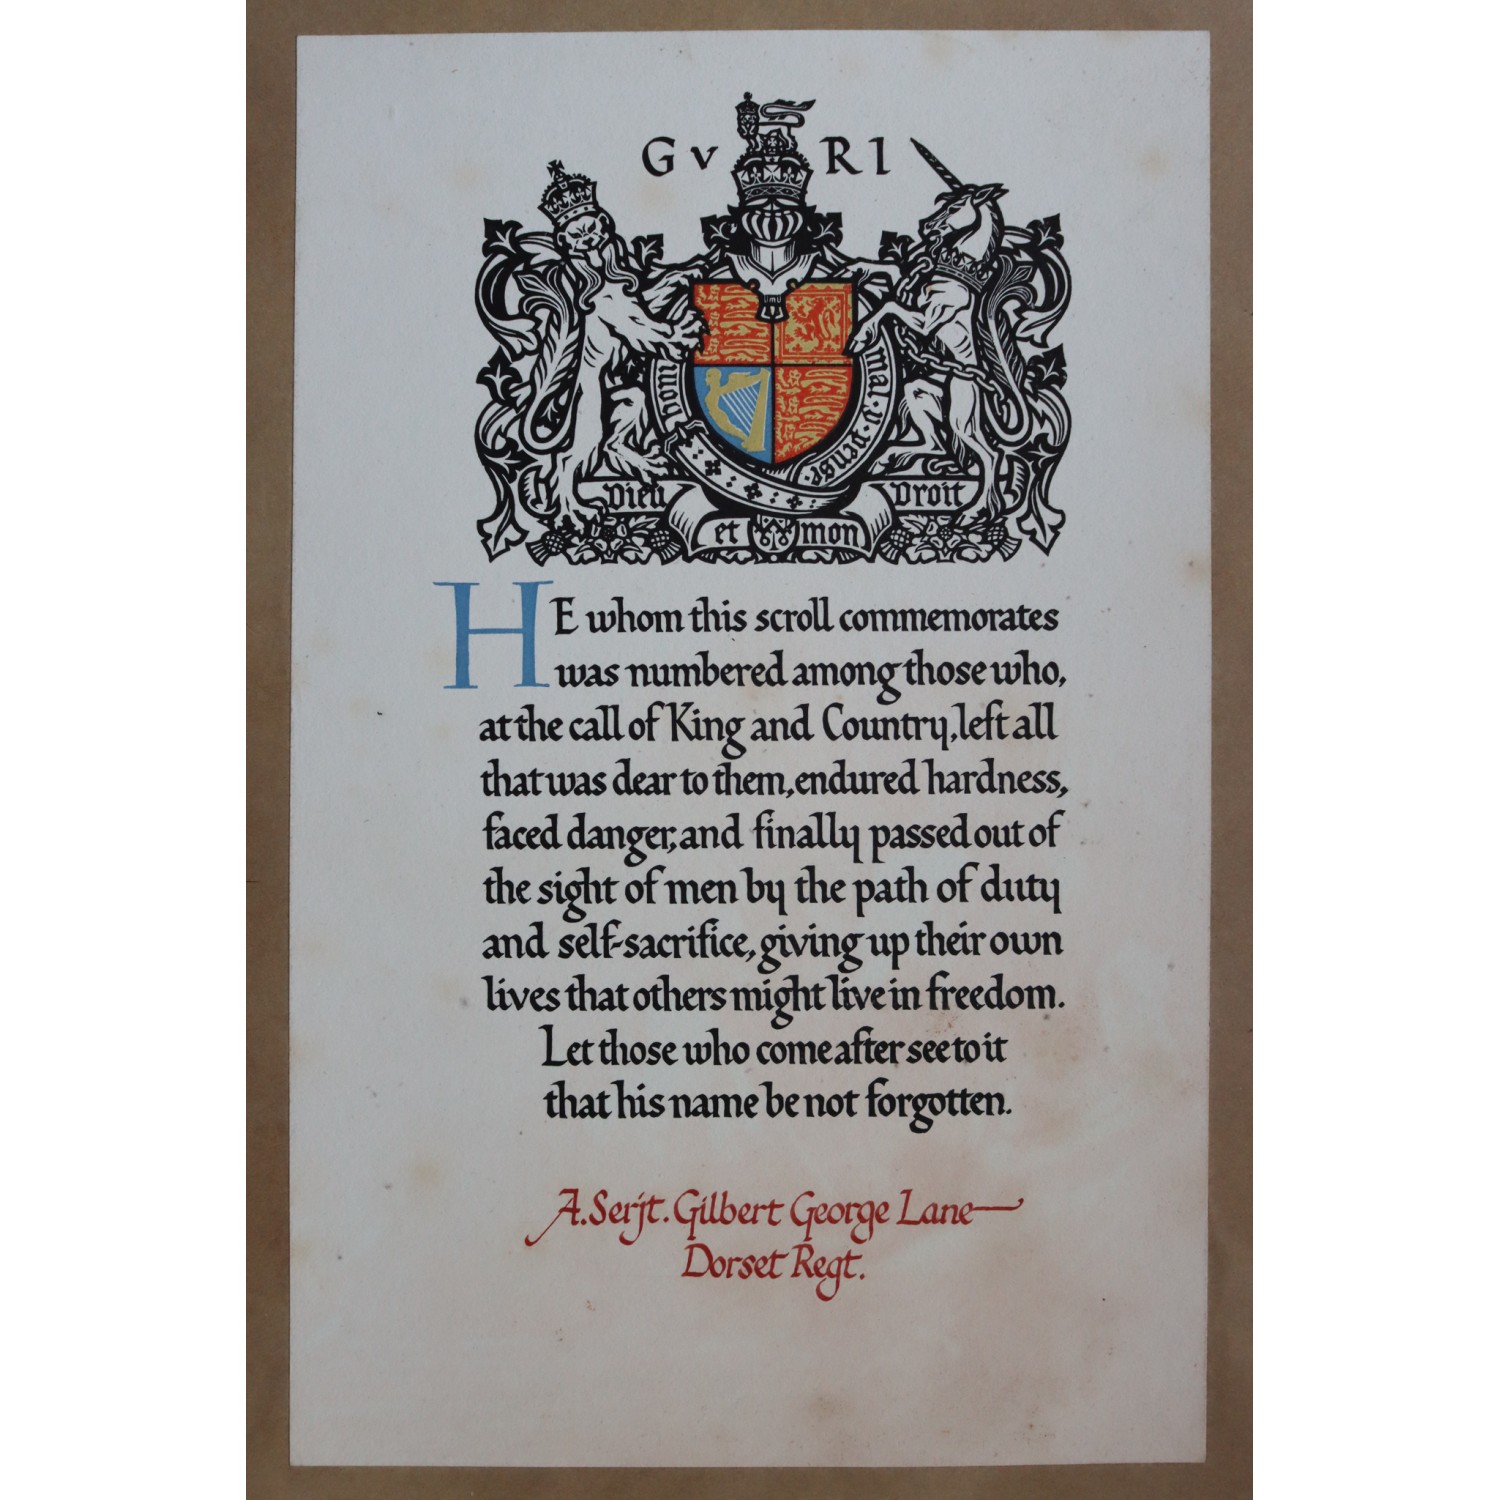 G V R I
Honi mal · y · pense ·
Dieu Droit
et mon
HE whom this scroll commemorates
was numbered among those who,
at the call of King and Country, left all
that was dear to them, endured hardness,
faced danger, and finally passed out of
the sight of men by the path of duty
and self-sacrifice, giving up their own
lives that others might live in freedom.
Let those who come after see to it
that his name be not forgotten.
A. Serjt. Gilbert George Lane
Dorset Regt.